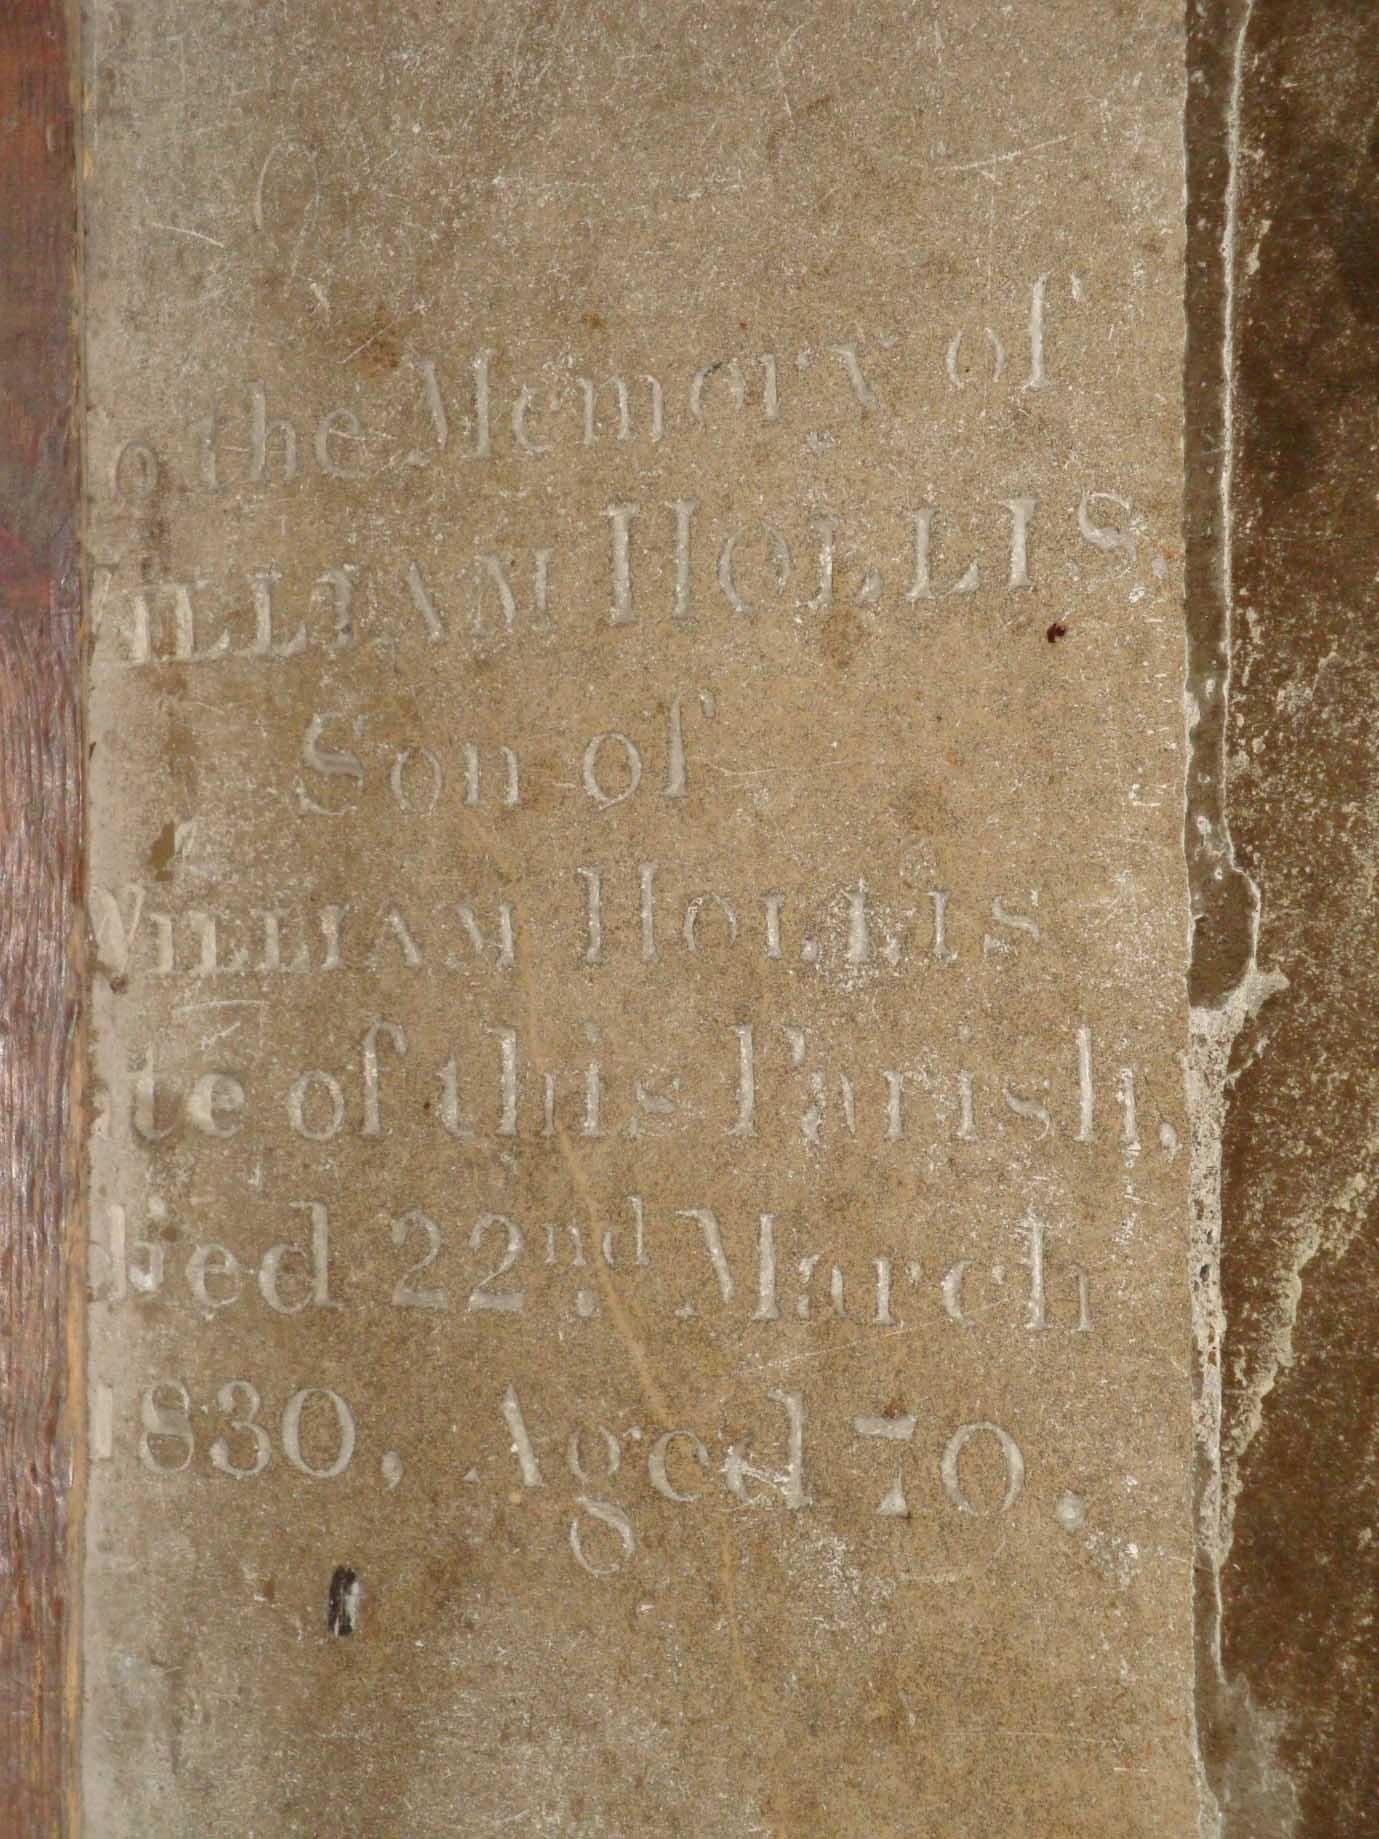 o the Memory of
WILLIAM HOLLIS.
Son of
WILLIAM HOLLIS
te of this Parish,
died 22nd. March
1830, Aged 70.